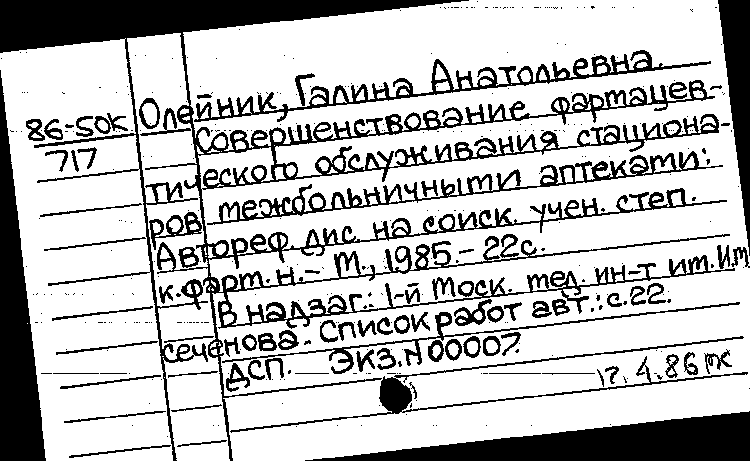 Олейник, Галина Анатольевна.
86-50К
717
Совершенствование фармацев-
тического обслуживания стациона-
ров межбольничными аптеками:
Автореф. дис. на соиск. учен. степ.
к.фарм.н. - М., 1985. - 22с.
В надзаг.: 1-й Моск. мед. ин-т им. И.М.
Сеченова. - Список работ авт.: с.22.
ДСП. ЭКЗ. N 00007.
17.4.86